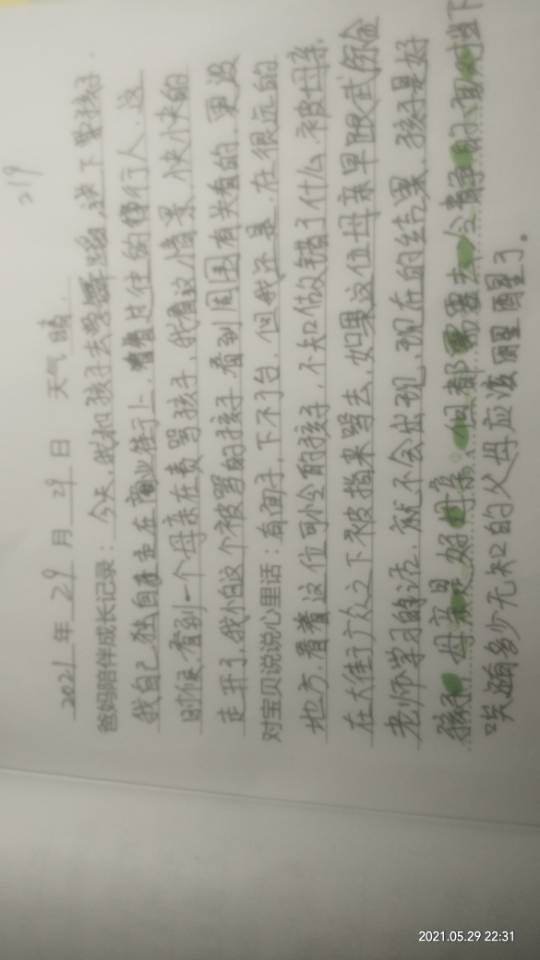 219
2021 年 29 月 29 日 天气 晴
爸妈陪伴成长记录：今天，我和孩子去学舞蹈，送下孩子，
我自己独自走在商业街上，看着过往的行人，这
时候看到一个母亲在责骂孩子，我看这情景，快快的
走开了，我怕这个被骂的孩子看到周围有关看的，更没
对宝贝说说心里话：有面子，下不了台，但我还是，在很远的
地方，看着这位可怜的孩子，不知做错了什么，被母亲
在大街广众之下被指来骂去，如果这位母亲早跟武
老师学习的话，就不会出现，现在的结果，孩子是好
孩子，母亲是好母亲，但都需要去
唉，还有多少无知的父母应该醒醒了。
2021.05.29 22:31